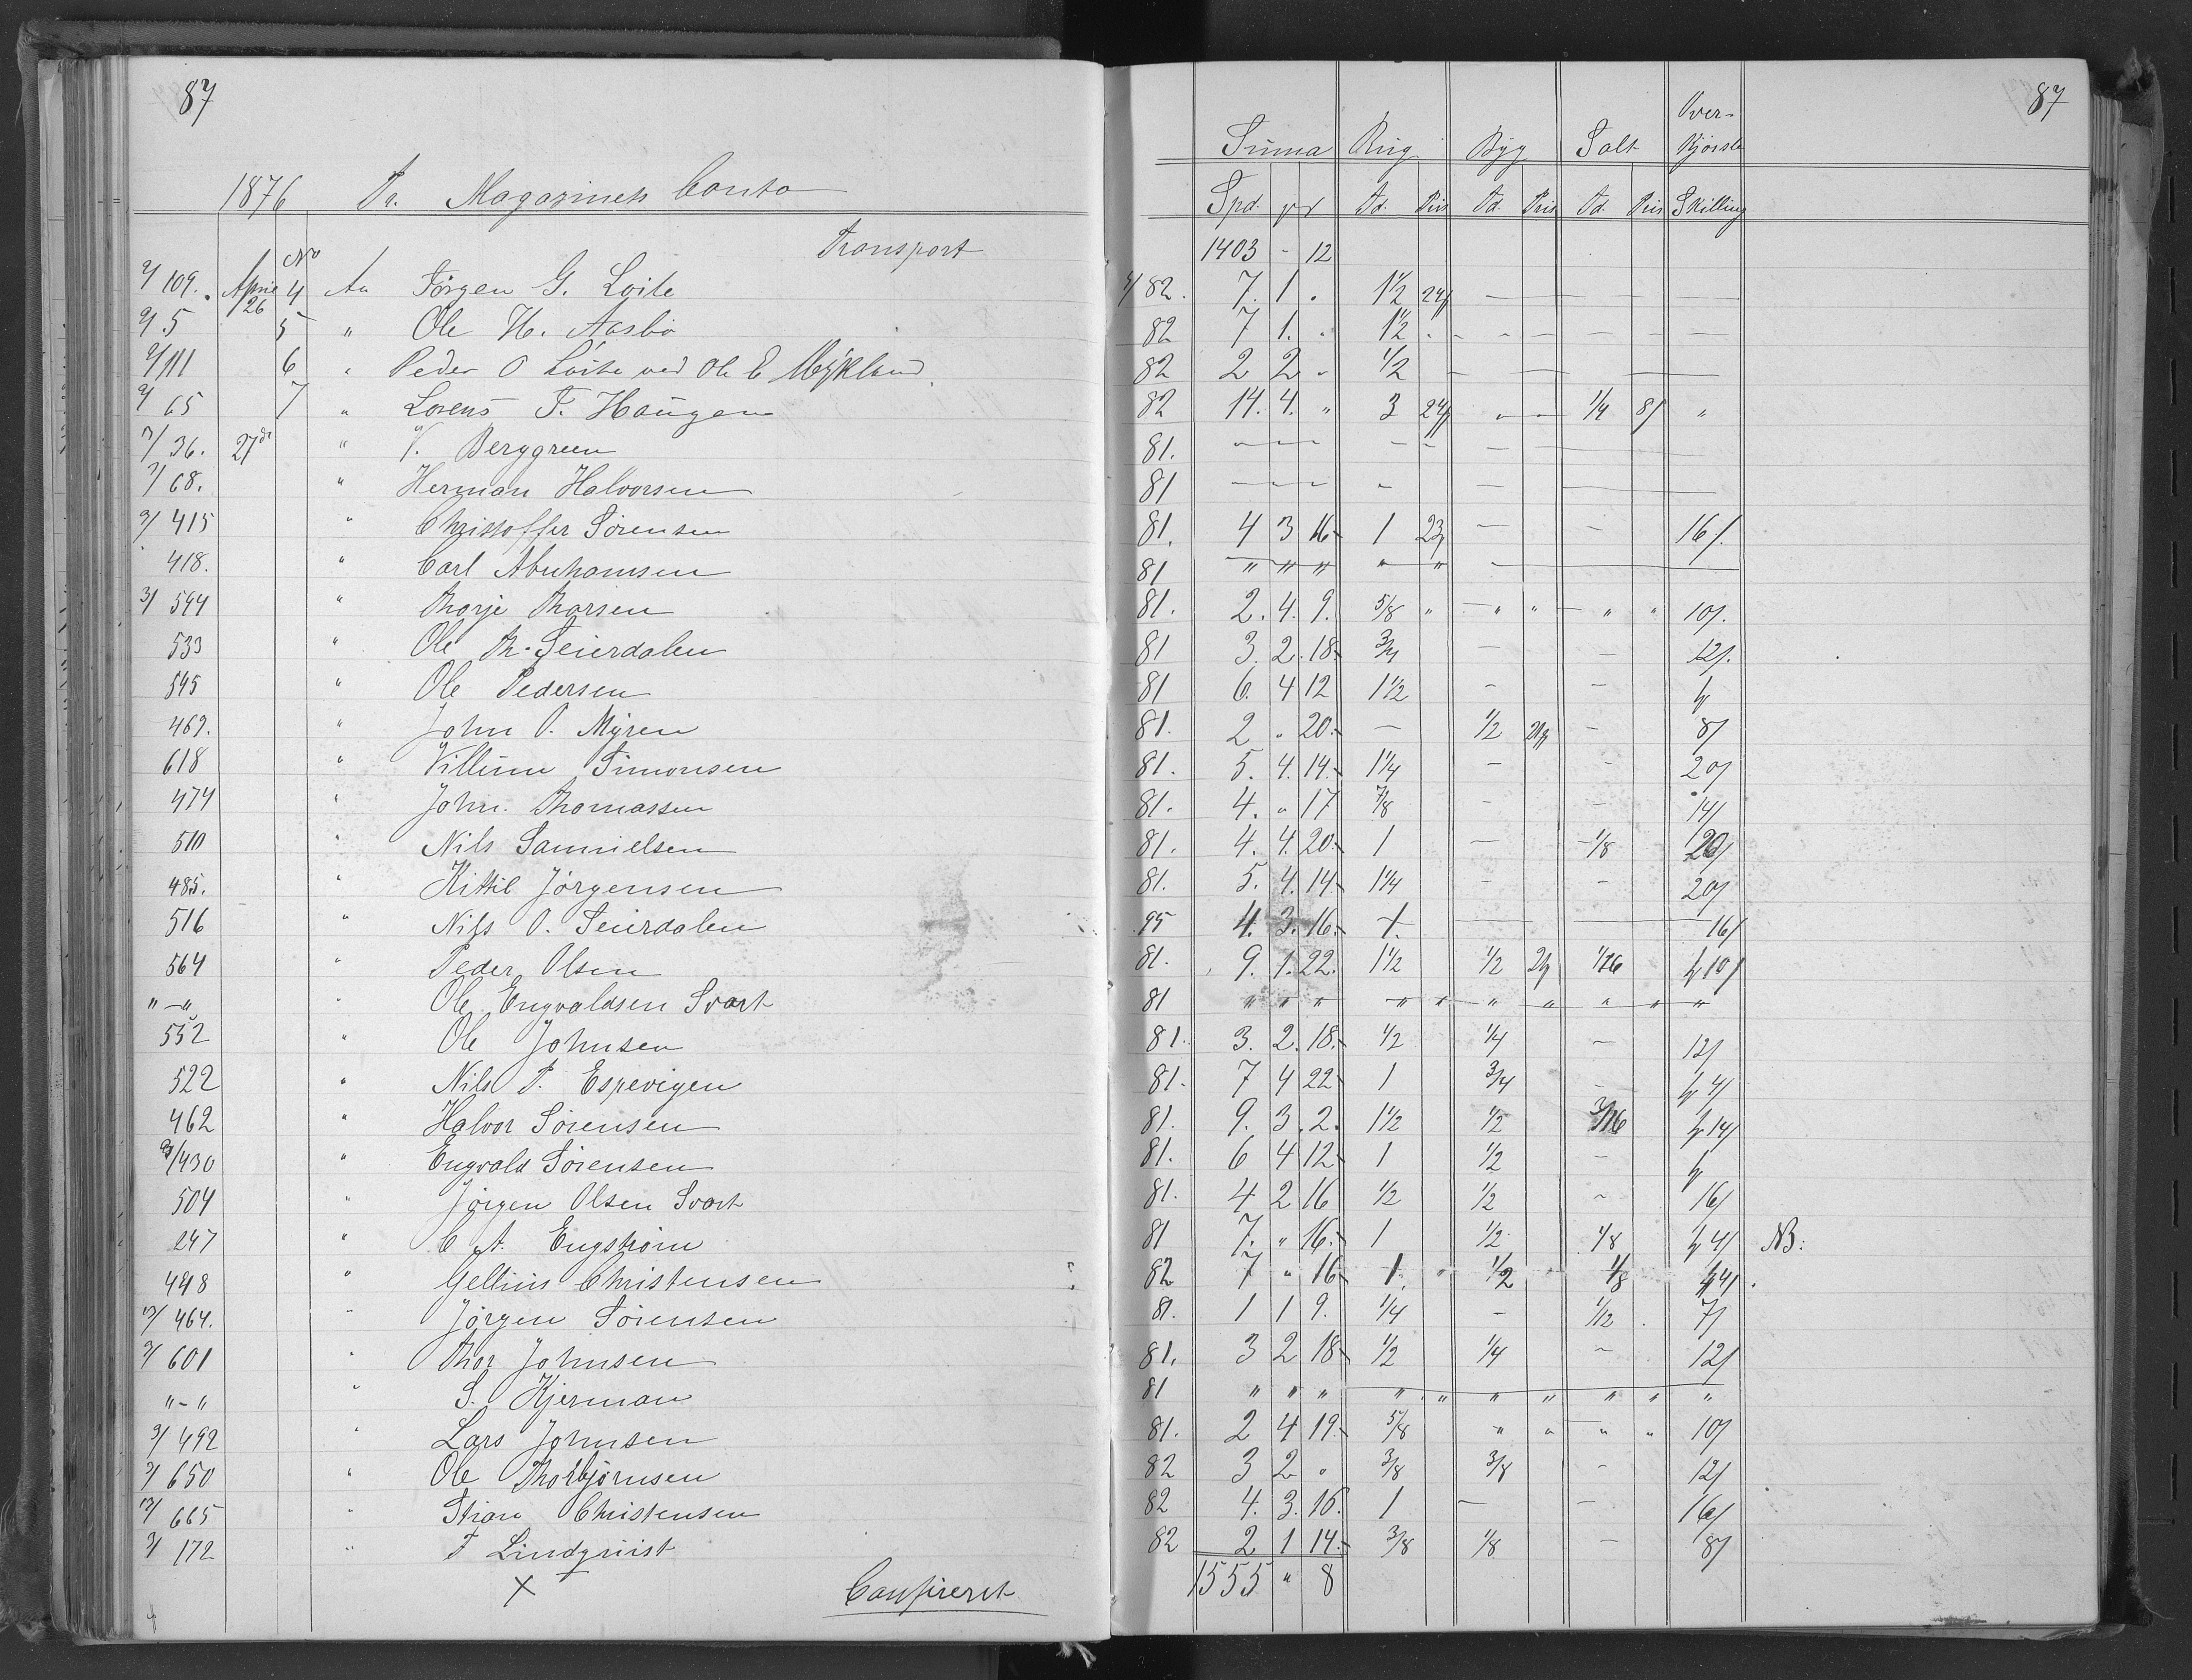 87
1876 Pr. Magasinets Conto
Transport
No
2/109. April 26 4 An Jörgen G. Loite
2/5 5 " Ole H. Aasbö
2/111 6 " Peder O Loite ved Ole E Mÿkland
2/65 7 " Lorens T. Haugen
36. 27de " V. Berggreen
68. " Herman Halvorsen
2/415 " Christoffer Sörensen
418. " Carl Abrahamsen
3/594 " Thorje Thorsen
533 " Ole Th. Seierdalen
545 " Ole Pedersen
469. " John O. Myren
618 " Villum Simonsen
474 " John. Thomassen
510 " Nils Samuelsen
485. " Kittil Jörgensen
516 " Nils O. Seierdalen
564 " Peder Olsen
" - " " Ole Engvaldsen Svart
552 " Ole Johnsen
522 " Nils P. Espevigen
462 " Halvor Sörensen
430 " Engvald Sörensen
504 " Jörgen Olsen Svart
247 " C. A. Engström
448 " Gellius Christensen
464. " Jörgen Sörensen
3/601 " Thor Johnsen
" - " " S. Kjerman
3/492 " Lars Johnsen
3/650 " Ole Thorbjörnsen
665 " Stian Christensen
3/172 " F Lindqvist
X Confireret
87
Suma Rug Byg Salt Over-
Kjörsle
Spd. Td. Pris Td. Pris Td. Pris Skilling
1403 - 12
82. 7. 1 . 1 1/2 24/ — — — — —
82 7 1. . 1 1/2 - - - - — — —
82 2 2 . 1/2 — — —
82 14. 4. " 3 24/ " - 1/4 8/ "
81. — — — — — — —
81 — — — - — —
81. 4 3 16 1 23/ — - 16/.
81 " " " " " -
81. 2. 4. 9. 5/8 " " " " " 10/.
81 3. 2. 18. 3/4 — - 12/.
81 6. 4 12 1 1/2 - -
81. 2 " 20. — 1/2 - 8/
81. 5. 4. 14. 1 1/4 - - 20/
81. 4. " 17 7/8 - - 14/
81. 4. 4. 20. 1 — 1/8 20/
81. 5. 4. 14. 1 1/4 - - 20/
95 4. 3. 16. 1. — — 16/
81. 9. 1. 22. 1 1/2 1/2 1/16 10/
81 " " " " " " " " " "
81. 3. 2. 18. 1/2 1/4 - 12/
81. 7 4 22 1 3/4 - 4/
81. 9. 3. 2. 1 1/2 1/2 3/16 14/
81. 6 4 12 1 1/2 -
81. 4 2 16 1/2 1/2 - 16/
81 7. " 16. 1 1/2 1/8 4/ NB:
82 7 " 16 1. 1/2 1/8 4/.
81. 1 1 9. 1/4 - 1/12 7/
81. 3 2 18 1/2 1/4 - 12/
81 " " " " " " " " " "
81. 2 4 19. 5/8 " " " " 10/
82 3 2 " 3/8 3/8 - 12/
82 4. 3. 16. 1 — — 16/
82 2 1 14. 3/8 1/8 — 8/
1555 " 8